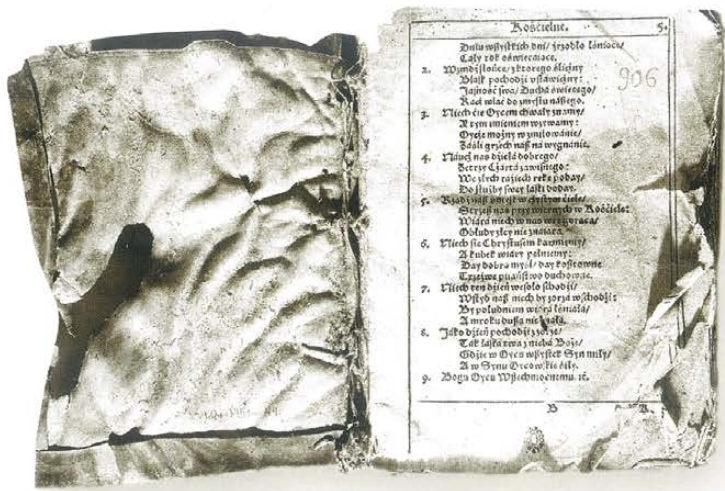 Kościelne. 5.
906
Dniu wßystkich dni/ źrzodło
Cały rok oświecaiące.
2. ktorego śliczny
Blask pochodzi vstawiczny:
Jasność swą/ Ducha świętego/
Racz wlać do zmysłu naßego.
3. Niech cie Oycem chwały znamy/
A tym imieniem wzywamy:
Oycze możny w zmiłowanie/
grzech naß na wygnanie.
4. Naucz nas dzieła dobrego/
Zetrzy Czarta zawisnego:
We złych raziech rękę poday/
Do służby swey łaski doday.
5. Rządź naß vmysł w czystym ciele/
Strzeß nas przy wiernych w Kościele:
Wiara niech w nas
Obłudy złey nie
6. Niech sie Chrystusem karmiemy/
A kubek wiary pełniemy:
Day dobrą myśl/ day kosztowne
Trzeźwe piiaństwo duchowne.
7. Niech ten dzień wesoło schodzi/
Wstyd naß niech by zorza wschodzi:
By południem wiara
A mroku dußa nie znała.
8. Jako dzień pochodzi z zorze/
Tak łaska twa z nieba Boże/
Gdzie w Oycu wßystek Syn miły/
A w Synu Oycowskie siły.
9. Bogu Oycu Wßechmocnemu. ić.
B